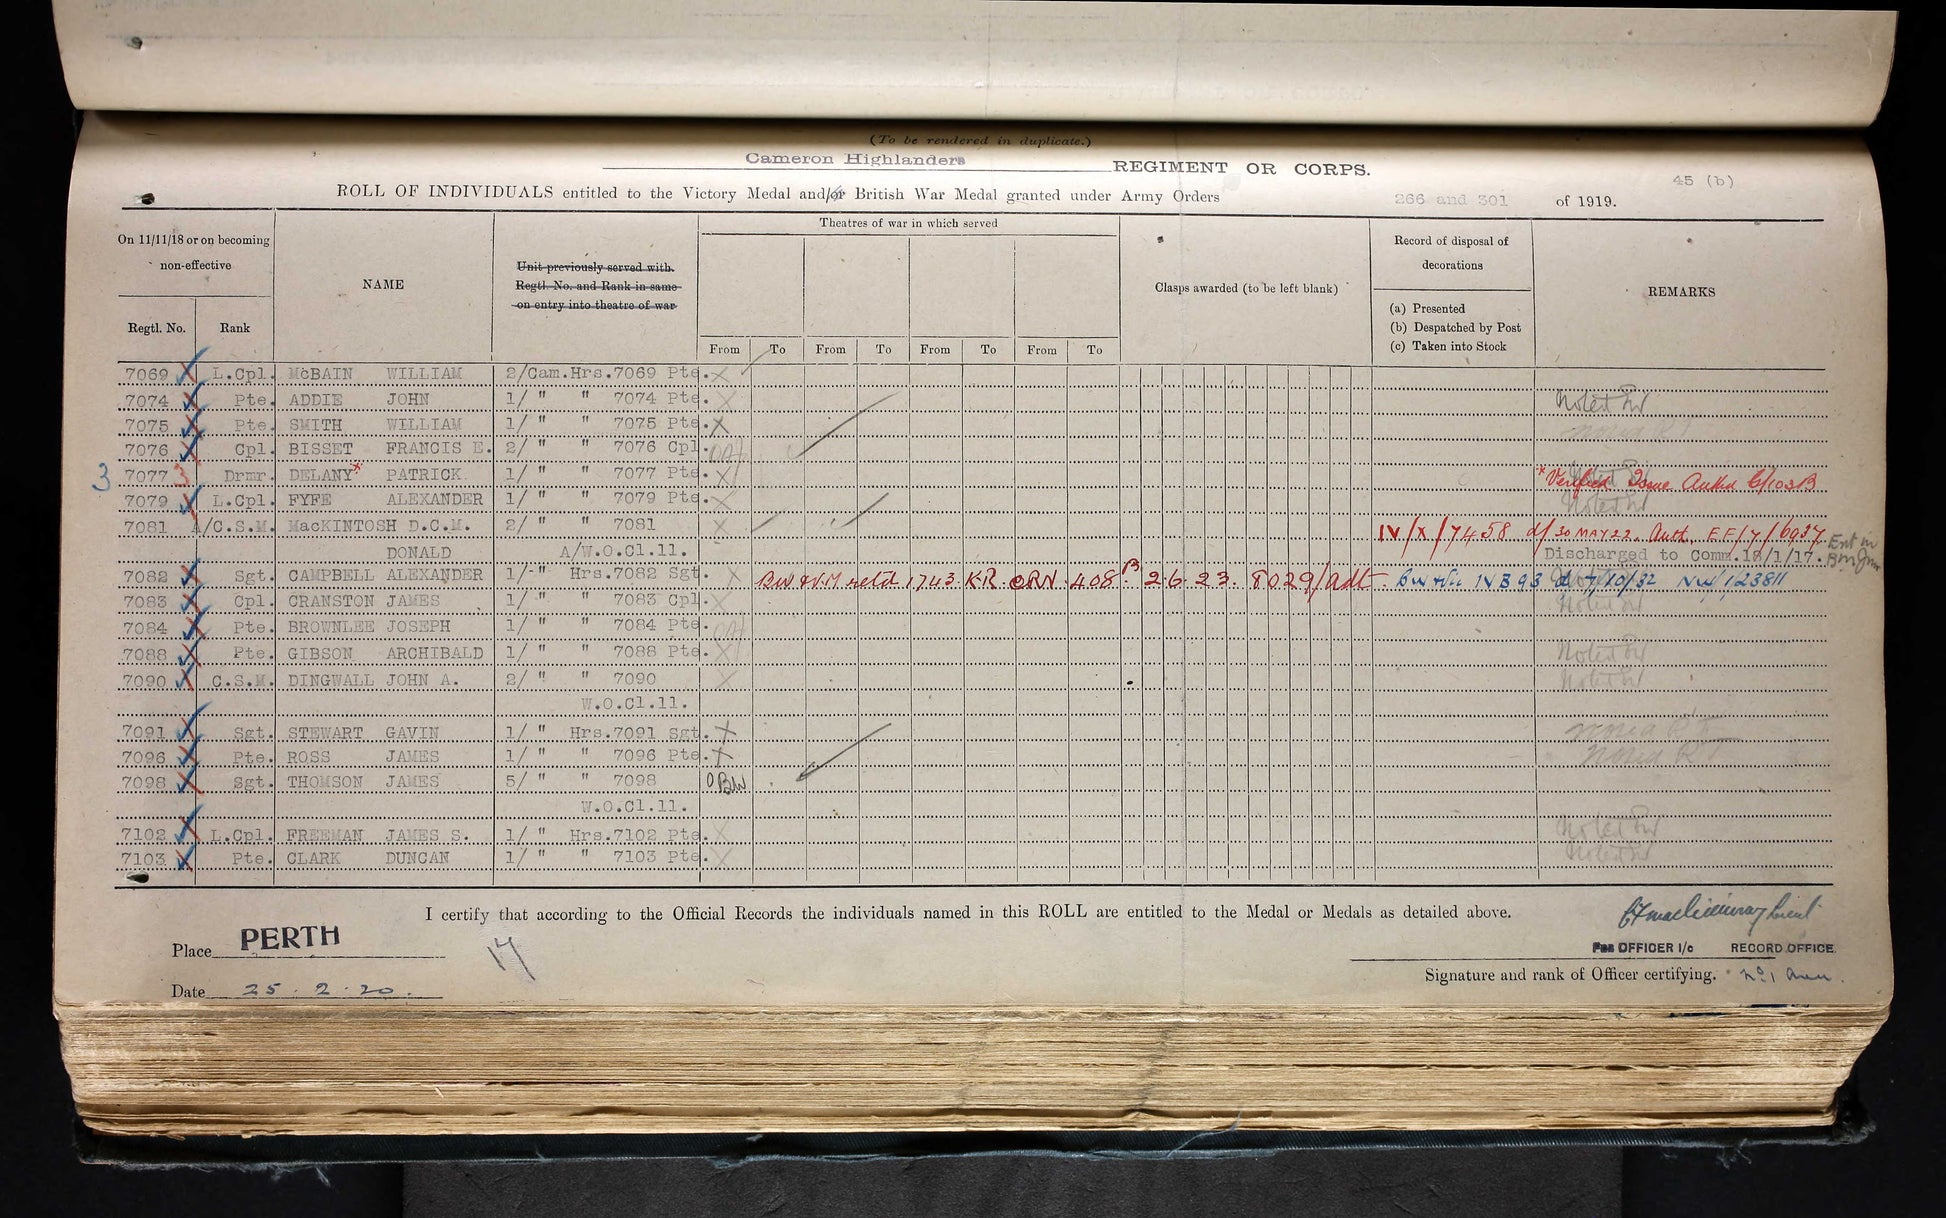 (To be rendered in duplicate.)
Cameron Highlanders REGIMENT OR CORPS.
45 (b)
ROLL OF INDIVIDUALS entitled to the Victory Medal and/or British War Medal granted under Army Orders 266 and 301 of 1919.
On 11/11/18 or on becoming non-effective
Regtl. No. Rank
NAME
Unit previously served with.
Regtl. No. and Rank in same
on entry into theatre of war
Theatres of war in which served
From To From To From To From To
Clasps awarded (to be left blank)
Record of disposal of decorations
(a) Presented
(b) Despatched by Post
(c) Taken into Stock
REMARKS
7069 L.Cpl. McBAIN WILLIAM 2/Cam.Hrs.7069 Pte.
7074 Pte. ADDIE JOHN 1/ " " 7074 Pte. Noted
7075 Pte. SMITH WILLIAM 1/ " " 7075 Pte.
7076 Cpl. BISSET FRANCIS E. 2/ " " 7076 Cpl
3 7077 3 Drmr. DELANY* PATRICK 1/ " " 7077 Pte. *Verified Issue Authd 6/103B
7079 L.Cpl. FYFE ALEXANDER 1/ " " 7079 Pte. Noted
7081 A/C.S.M. MacKINTOSH D.C.M. 2/ " " 7081 IV/X/7458 d/30 MAY 22. Auth. EF/7/6937
DONALD A/W.O.Cl.11. Discharged to Comm.18/1/17.
7082 Sgt. CAMPBELL ALEXANDER 1/ " Hrs.7082 Sgt. BW & VM retd 1743 KR CRN 408B 2 6 23. 8029/Adt. NW/123811
7083 Cpl. CRANSTON JAMES 1/ " " 7083 Cpl. Noted
7084 Pte. BROWNLEE JOSEPH 1/ " " 7084 Pte.
7088 Pte. GIBSON ARCHIBALD 1/ " " 7088 Pte. Noted
7090 C.S.M. DINGWALL JOHN A. 2/ " " 7090 Noted
W.O.Cl.11.
7091 Sgt. STEWART GAVIN 1/ " Hrs.7091 Sgt.
7096 Pte. ROSS JAMES 1/ " " 7096 Pte.
7098 Sgt. THOMSON JAMES 5/ " " 7098
W.O.Cl.11.
7102 L.Cpl. FREEMAN JAMES S. 1/ " Hrs.7102 Pte. Noted
7103 Pte. CLARK DUNCAN 1/ " " 7103 Pte. Noted
I certify that according to the Official Records the individuals named in this ROLL are entitled to the Medal or Medals as detailed above.
Place PERTH
OFFICER I/c RECORD OFFICE.
Signature and rank of Officer certifying.
Date 25.2.20.